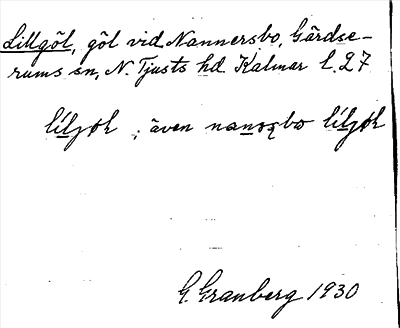 Lillgöl, göl vid Nannersbo, Gärdse-
rums sn, N. Tjusts hd Kalmar l. 27
liljøk ; även nanosbo liljøk
G. Granberg 1930